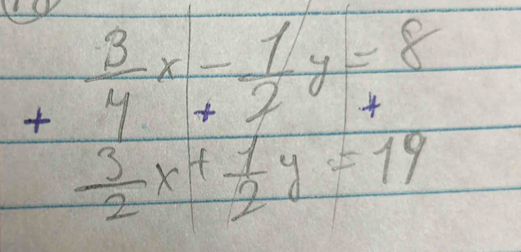 3/4 x - 1/2 y = 8
+ + +
3/2 x + 1/2 y = 19